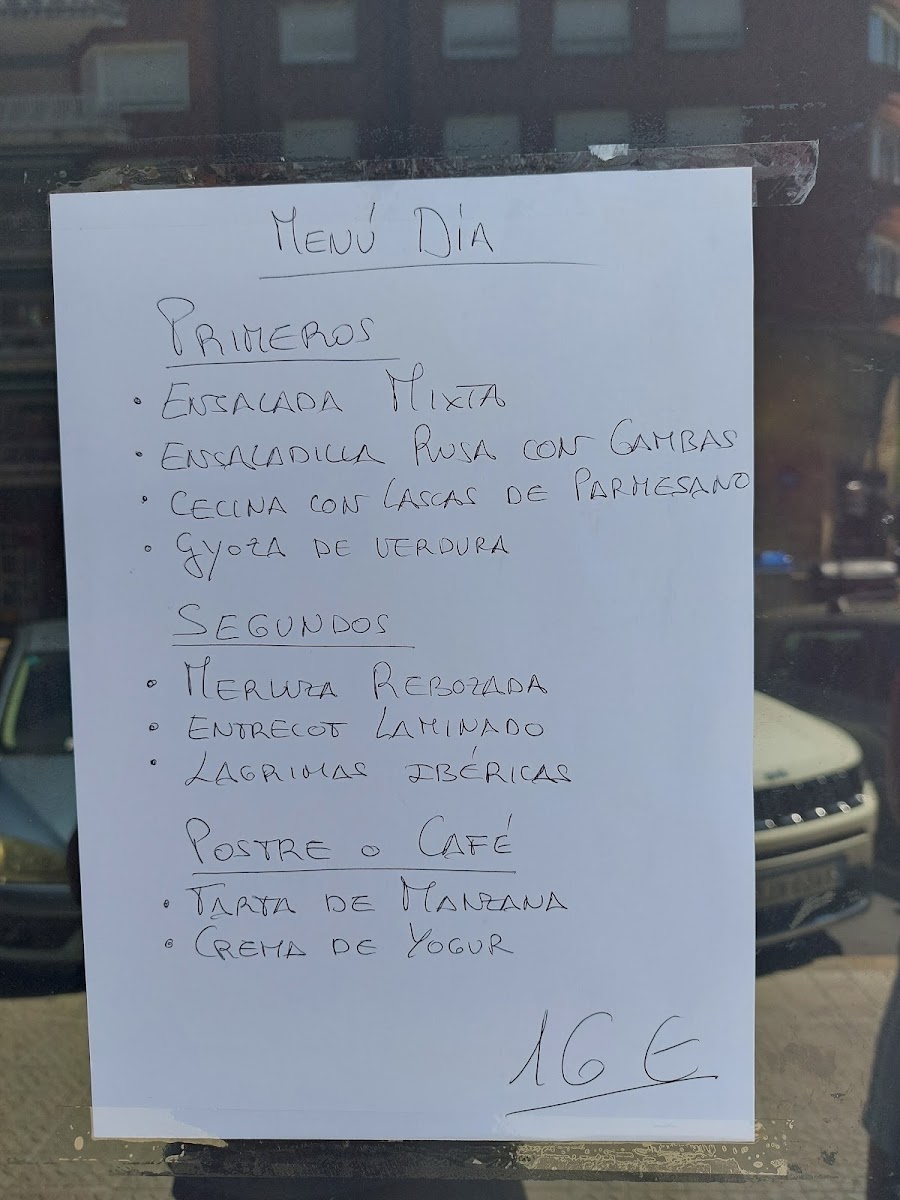 MENÚ DÍA
PRIMEROS
• ENSALADA MIXTA
• ENSALADILLA RUSA CON GAMBAS
• CECINA CON LASCAS DE PARMESANO
• GYOZA DE VERDURA
SEGUNDOS
• MERLUZA REBOZADA
• ENTRECOT LAMINADO
• LAGRIMAS IBÉRICAS
POSTRE O CAFÉ
• TARTA DE MANZANA
• CREMA DE YOGUR
16 €